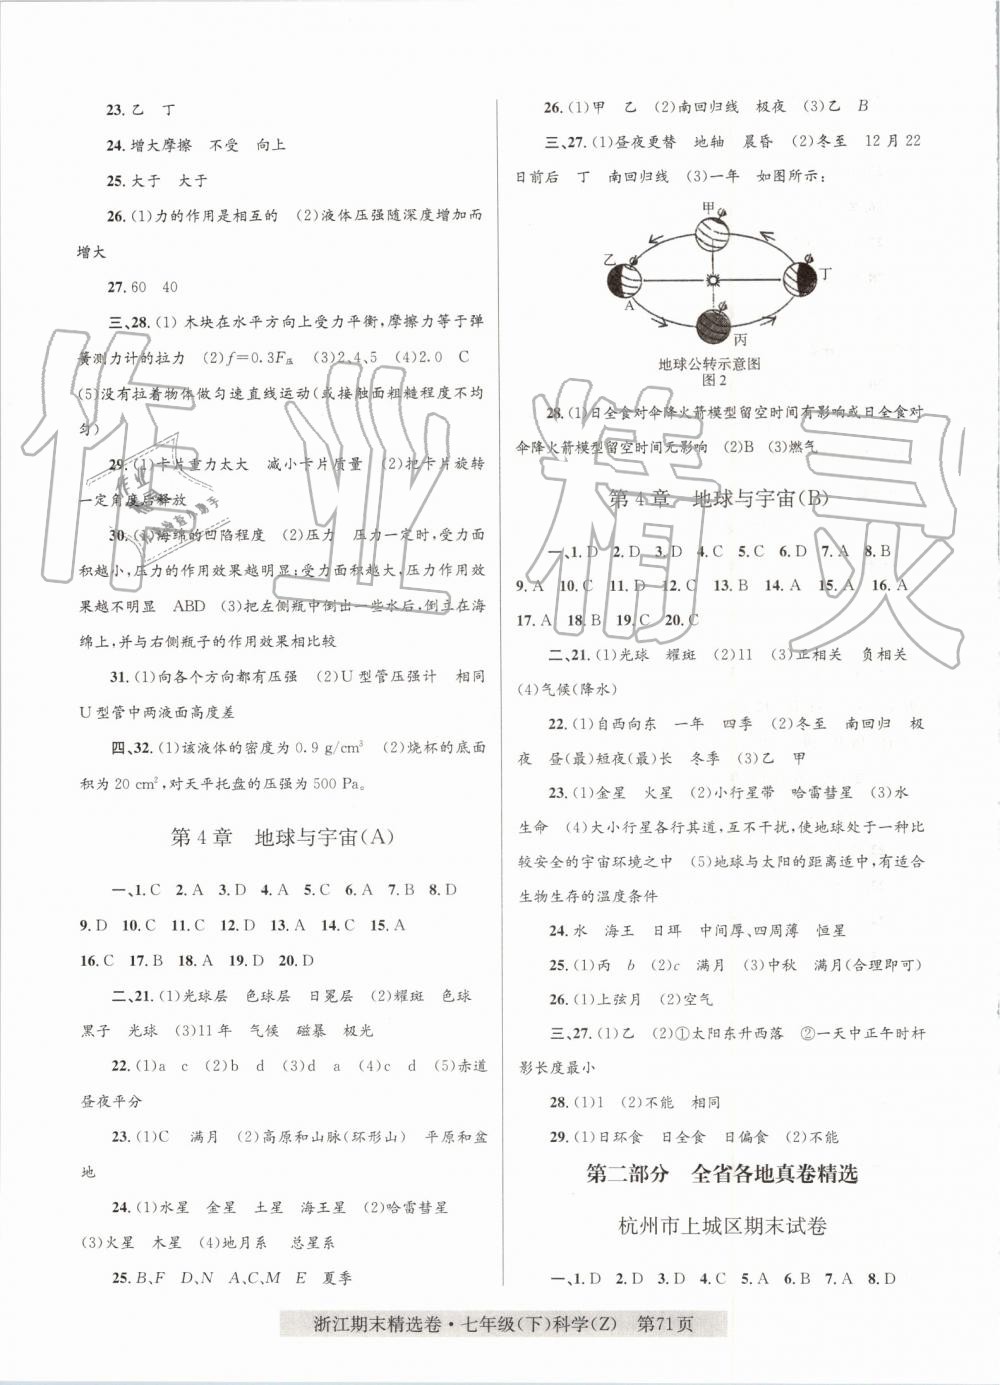 23.乙　丁
24.增大摩擦　不受　向上
25.大于　大于
26.(1)力的作用是相互的　(2)液体压强随深度增加而
增大
27.60　40
三、28.(1)木块在水平方向上受力平衡,摩擦力等于弹
簧测力计的拉力　(2)f=0.3F压　(3)2、4、5　(4)2.0　C
(5)没有拉着物体做匀速直线运动(或接触面粗糙程度不均
匀)
29.(1)卡片重力太大　减小卡片质量　(2)把卡片旋转
一定角度后释放
30.(1)海绵的凹陷程度　(2)压力　压力一定时,受力面
积越小,压力的作用效果越明显;受力面积越大,压力作用效
果越不明显　ABD　(3)把左侧瓶中倒出一些水后,倒立在海
绵上,并与右侧瓶子的作用效果相比较
31.(1)向各个方向都有压强　(2)U型管压强计　相同
U型管中两液面高度差
四、32.(1)该液体的密度为0.9 g/cm³　(2)烧杯的底面
积为20 cm²,对天平托盘的压强为500 Pa。
第4章　地球与宇宙(A)
一、1.C　2.A　3.D　4.A　5.C　6.A　7.B　8.D
9.D　10.C　11.C　12.D　13.A　14.C　15.A
16.C　17.B　18.A　19.D　20.D
二、21.(1)光球层　色球层　日冕层　(2)耀斑　色球
黑子　光球　(3)11年　气候　磁暴　极光
22.(1)a　c　(2)b　d　(3)d　a　(4)c　d　(5)赤道
昼夜平分
23.(1)C　满月　(2)高原和山脉(环形山)　平原和盆
地
24.(1)水星　金星　土星　海王星　(2)哈雷彗星
(3)火星　木星　(4)地月系　总星系
25.B、F　D、N　A、C、M　E　夏季
26.(1)甲　乙　(2)南回归线　极夜　(3)乙　B
三、27.(1)昼夜更替　地轴　晨昏　(2)冬至　12月22
日前后　丁　南回归线　(3)一年　如图所示:
甲
乙
丁
A
丙
地球公转示意图
图2
28.(1)日全食对伞降火箭模型留空时间有影响或日全食对
伞降火箭模型留空时间无影响　(2)B　(3)燃气
第4章　地球与宇宙(B)
一、1.D　2.D　3.D　4.C　5.C　6.D　7.A　8.B
9.A　10.C　11.D　12.C　13.B　14.A　15.A　16.A
17.A　18.B　19.C　20.C
二、21.(1)光球　耀斑　(2)11　(3)正相关　负相关
(4)气候(降水)
22.(1)自西向东　一年　四季　(2)冬至　南回归　极
夜　昼(最)短夜(最)长　冬季　(3)乙　甲
23.(1)金星　火星　(2)小行星带　哈雷彗星　(3)水
生命　(4)大小行星各行其道,互不干扰,使地球处于一种比
较安全的宇宙环境之中　(5)地球与太阳的距离适中,有适合
生物生存的温度条件
24.水　海王　日珥　中间厚、四周薄　恒星
25.(1)丙　b　(2)c　满月　(3)中秋　满月(合理即可)
26.(1)上弦月　(2)空气
三、27.(1)乙　(2)①太阳东升西落　②一天中正午时杆
影长度最小
28.(1)1　(2)不能　相同
29.(1)日环食　日全食　日偏食　(2)不能
第二部分　全省各地真卷精选
杭州市上城区期末试卷
一、1.D　2.D　3.D　4.A　5.D　6.B　7.A　8.D
浙江期末精选卷·七年级(下)科学(Z)　第71页
作业精灵